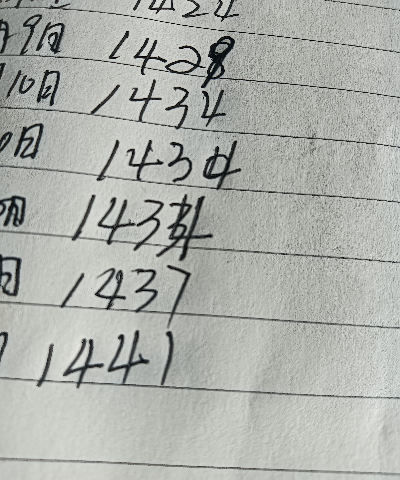 1424
月9日 1428
10日 1434
0日 1434
1434
日 1437
1441